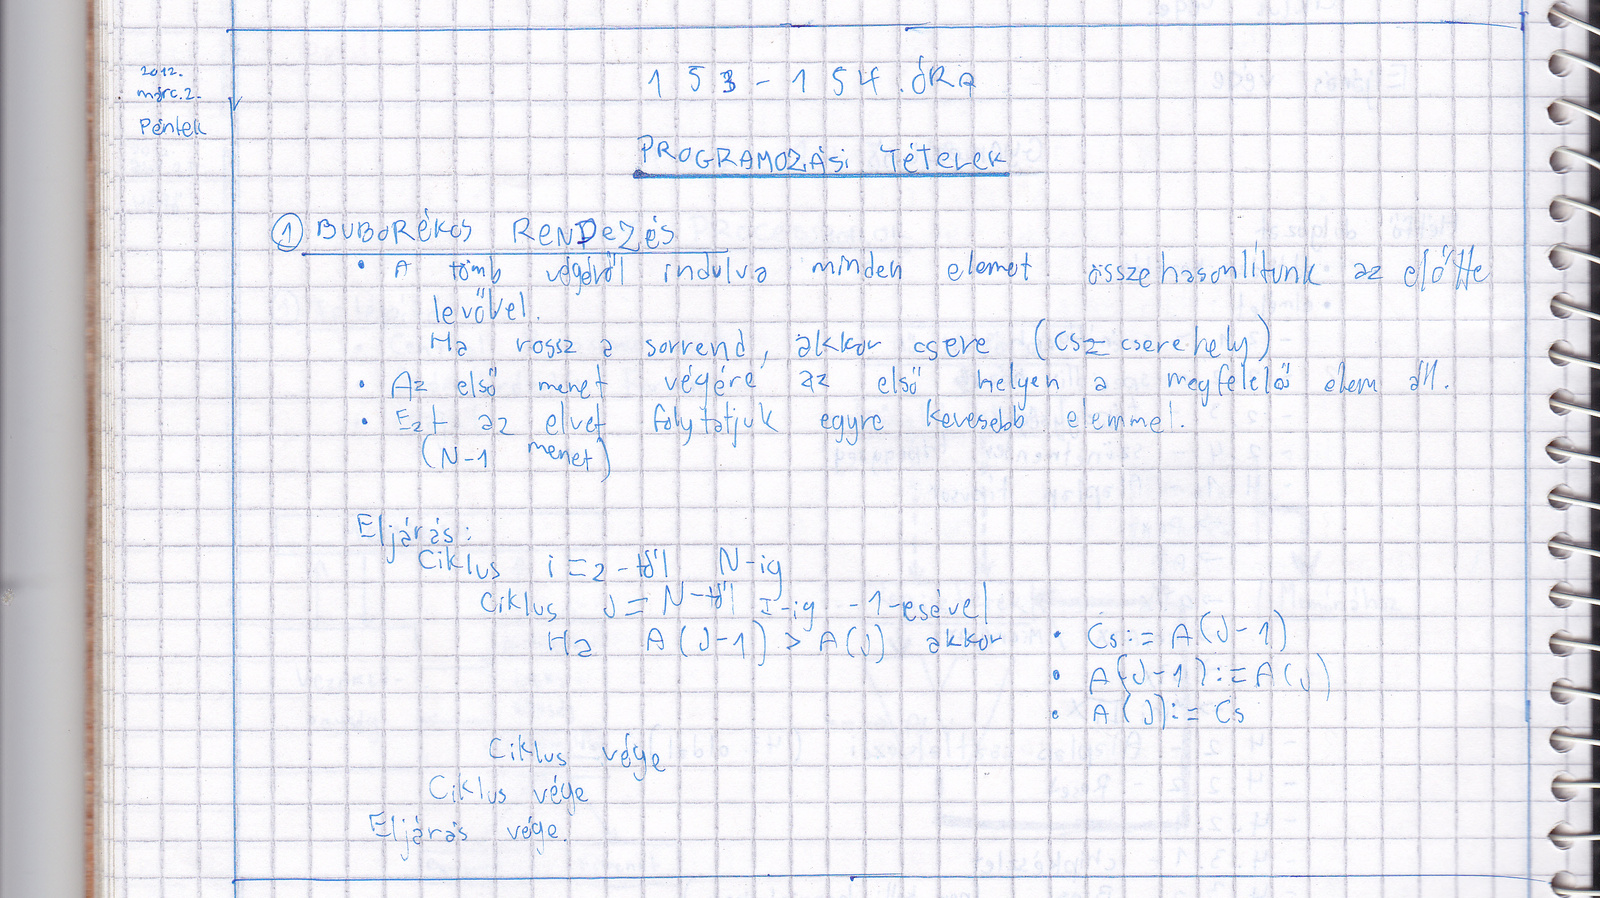 2012.
márc.2.
Péntek
153-154. ÓRA
PROGRAMOZÁSI TÉTELEK
① BUBORÉKOS RENDEZÉS
• A tömb végéről indulva minden elemet összehasonlítunk az előtte
levővel.
Ha rossz a sorrend, akkor csere (CS= cserehely)
• Az első menet végére az első helyen a megfelelő elem áll.
• Ezt az elvet folytatjuk egyre kevesebb elemmel.
(N-1 menet)
Eljárás:
Ciklus i=2-től N-ig
Ciklus J=N-től I-ig -1-esével
Ha A(J-1) > A(J) akkor • Cs:= A(J-1)
• A(J-1):=A(J)
• A(J):= Cs
Ciklus vége
Ciklus vége
Eljárás vége.